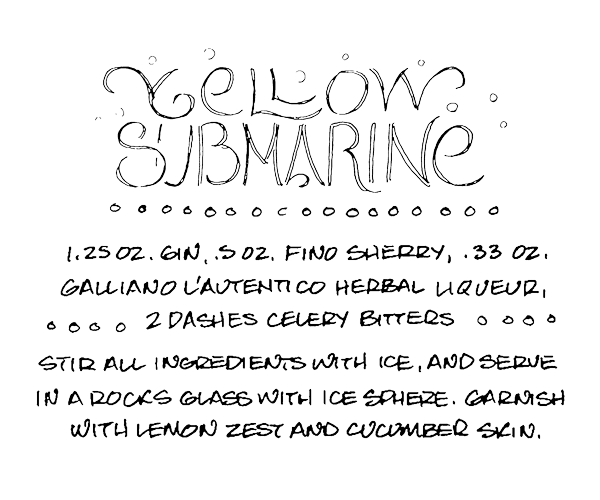 YELLOW
SUBMARINE
1.25 OZ. GIN, .5 OZ. FINO SHERRY, .33 OZ.
GALLIANO L'AUTENTICO HERBAL LIQUEUR,
2 DASHES CELERY BITTERS
STIR ALL INGREDIENTS WITH ICE, AND SERVE
IN A ROCKS GLASS WITH ICE SPHERE. GARNISH
WITH LEMON ZEST AND CUCUMBER SKIN.